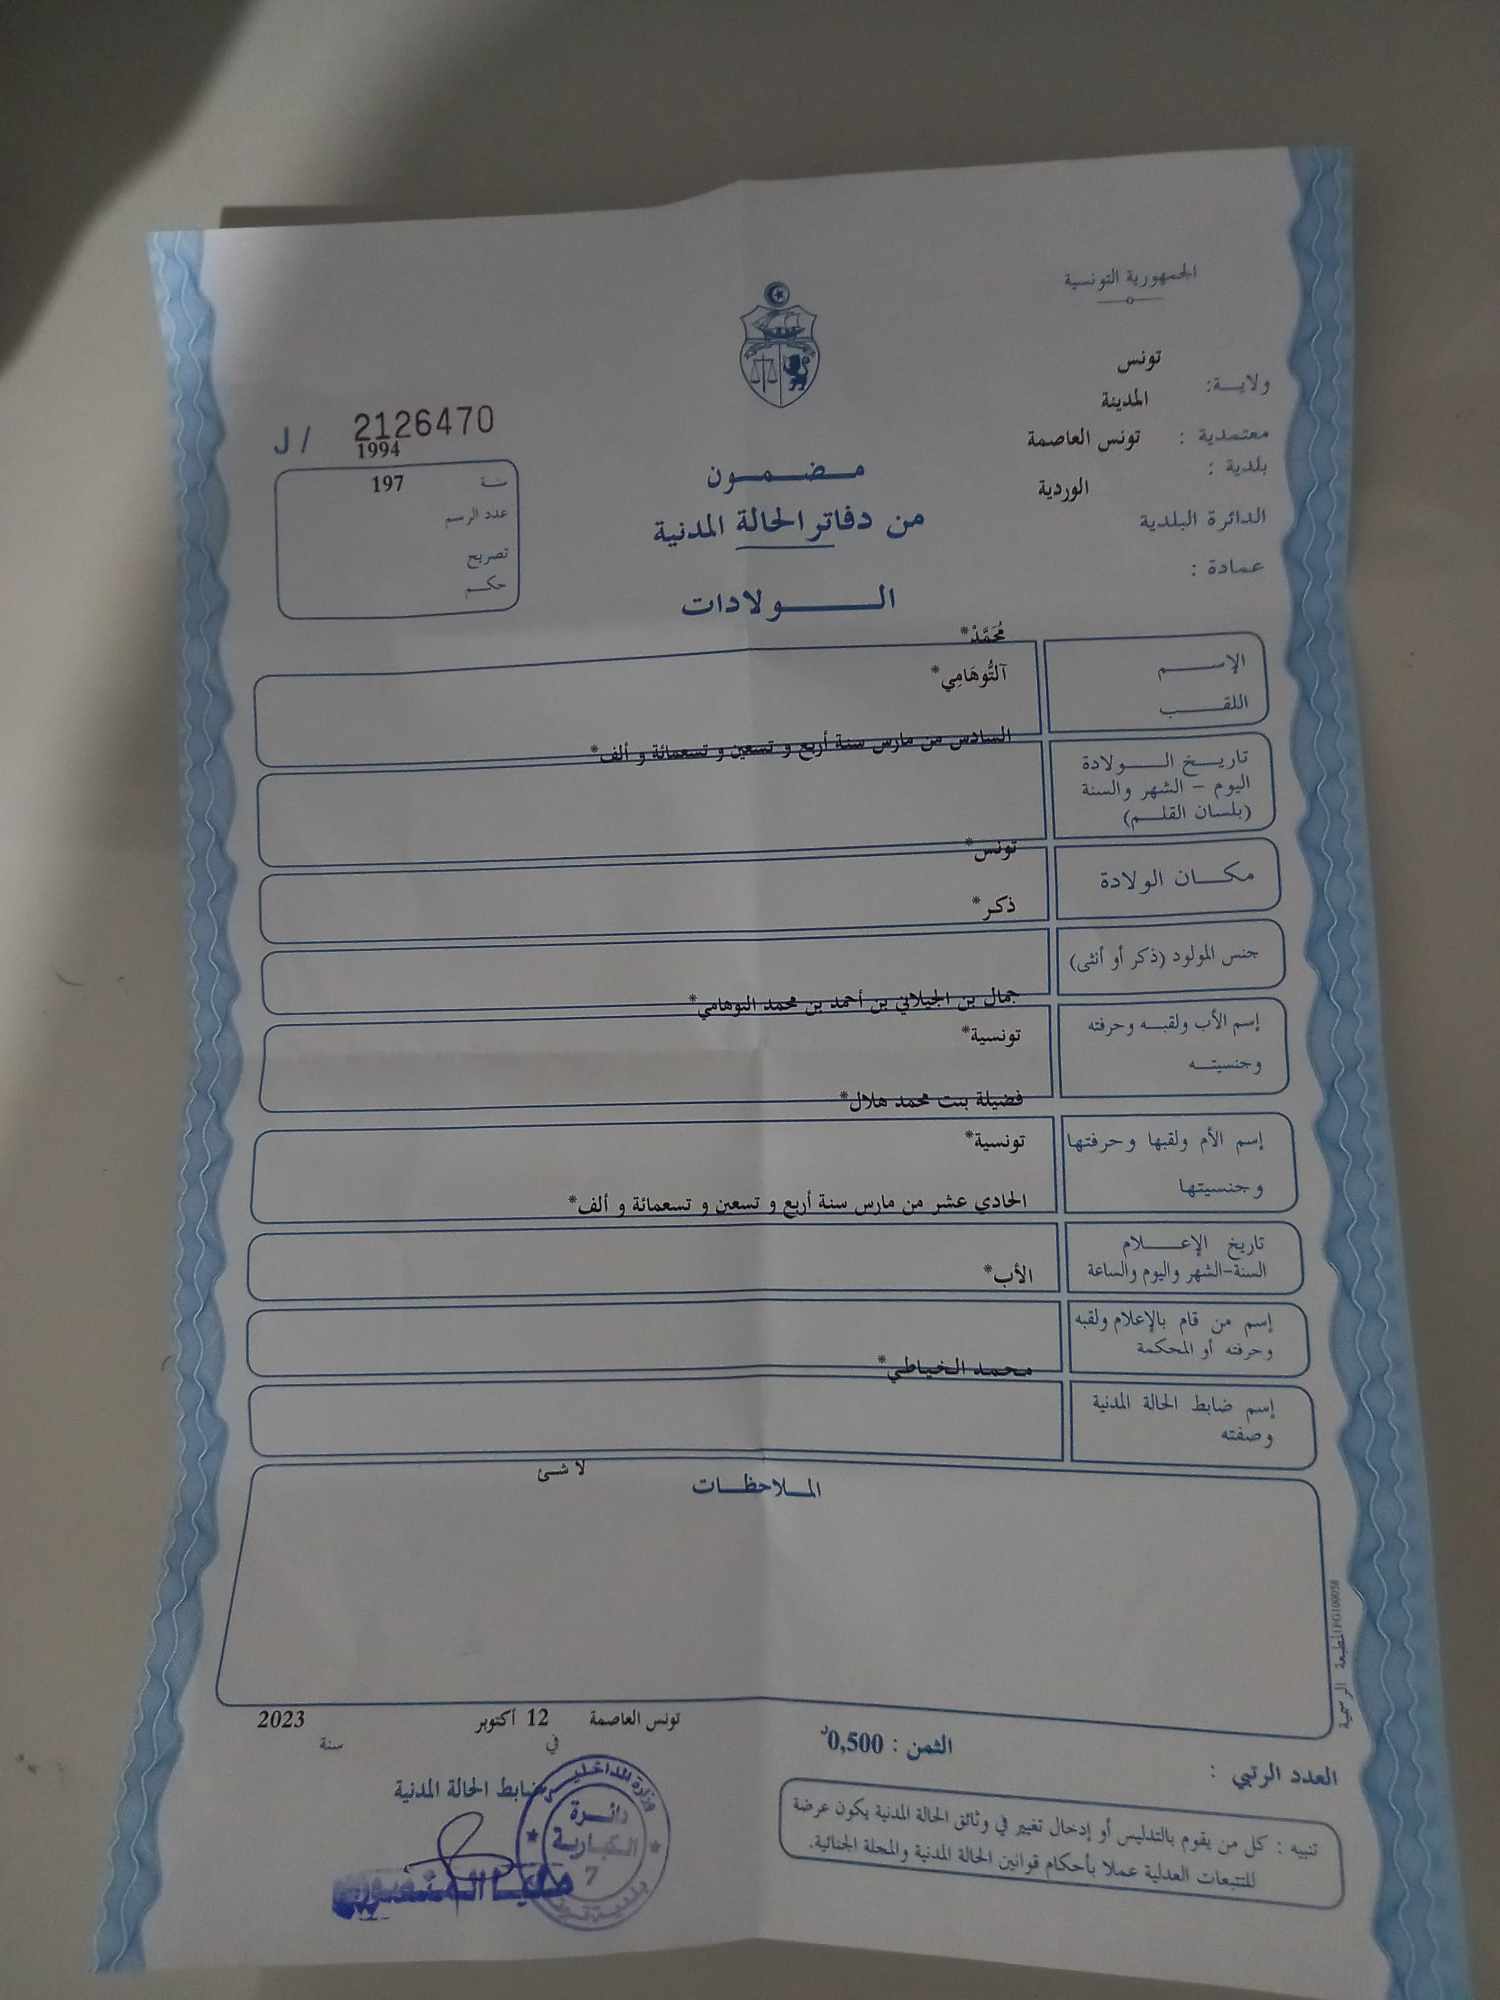 الجمهورية التونسية
تونس
ولاية:
المدينة
معتمدية : تونس العاصمة
بلدية :
الوردية
الدائرة البلدية
عمادة :
J / 2126470
1994
سنة
197
عدد الرسم
تصريح
حكم
مضمون
من دفاتر الحالة المدنية
الولادات
مُحَمَّدْ*
الإسم
آلتُّوهَامِي*
اللقب
السادس من مارس سنة أربع و تسعين و تسعمائة و ألف*
تاريخ الولادة
اليوم - الشهر والسنة
(بلسان القلم)
تونس*
مكان الولادة
ذكر*
جنس المولود (ذكر أو أنثى)
جمال بن الجيلاني بن أحمد بن محمد التوهامي*
إسم الأب ولقبه وحرفته
تونسية*
وجنسيته
فضيلة بنت محمد هلال*
إسم الأم ولقبها وحرفتها
تونسية*
وجنسيتها
الحادي عشر من مارس سنة أربع و تسعين و تسعمائة و ألف*
تاريخ الإعلام
السنة-الشهر واليوم والساعة
الأب*
إسم من قام بالإعلام ولقبه
وحرفته أو المحكمة
محمد الخياطي*
إسم ضابط الحالة المدنية
وصفته
لا شئ
الملاحظات
المطبعة الرسمية
تونس العاصمة 12 أكتوبر 2023
في سنة
الثمن : 0,500د
العدد الرتبي :
ضابط الحالة المدنية
تنبيه : كل من يقوم بالتدليس أو إدخال تغيير في وثائق الحالة المدنية يكون عرضة
للتتبعات العدلية عملا بأحكام قوانين الحالة المدنية والمجلة الجنائية.
وزارة الداخلية
دائرة
الكبارية
7
بلدية تونس